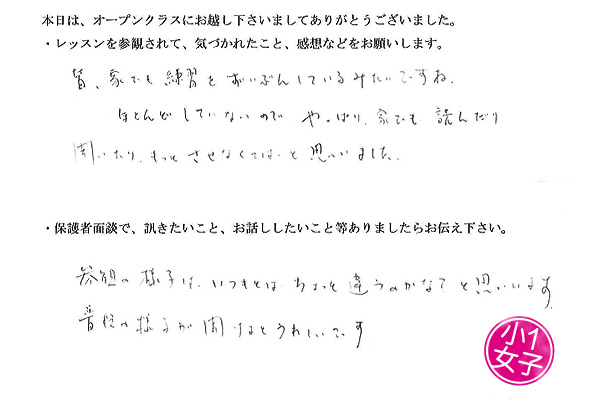 本日は、オープンクラスにお越し下さいましてありがとうございました。
・レッスンを参観されて、気づかれたこと、感想などをお願いします。
皆、家でも練習をずいぶんしているみたいですね。
ほとんどしていないので やっぱり、家でも 読んだり
聞いたり、もっと させなくては…と 思いました。
・保護者面談で、訊きたいこと、お話ししたいこと等ありましたらお伝え下さい。
参観の様子は、いつもとは ちょっと 違うのかなぁ と 思います。
普段の様子が 聞けるとうれしいです
小1
女子